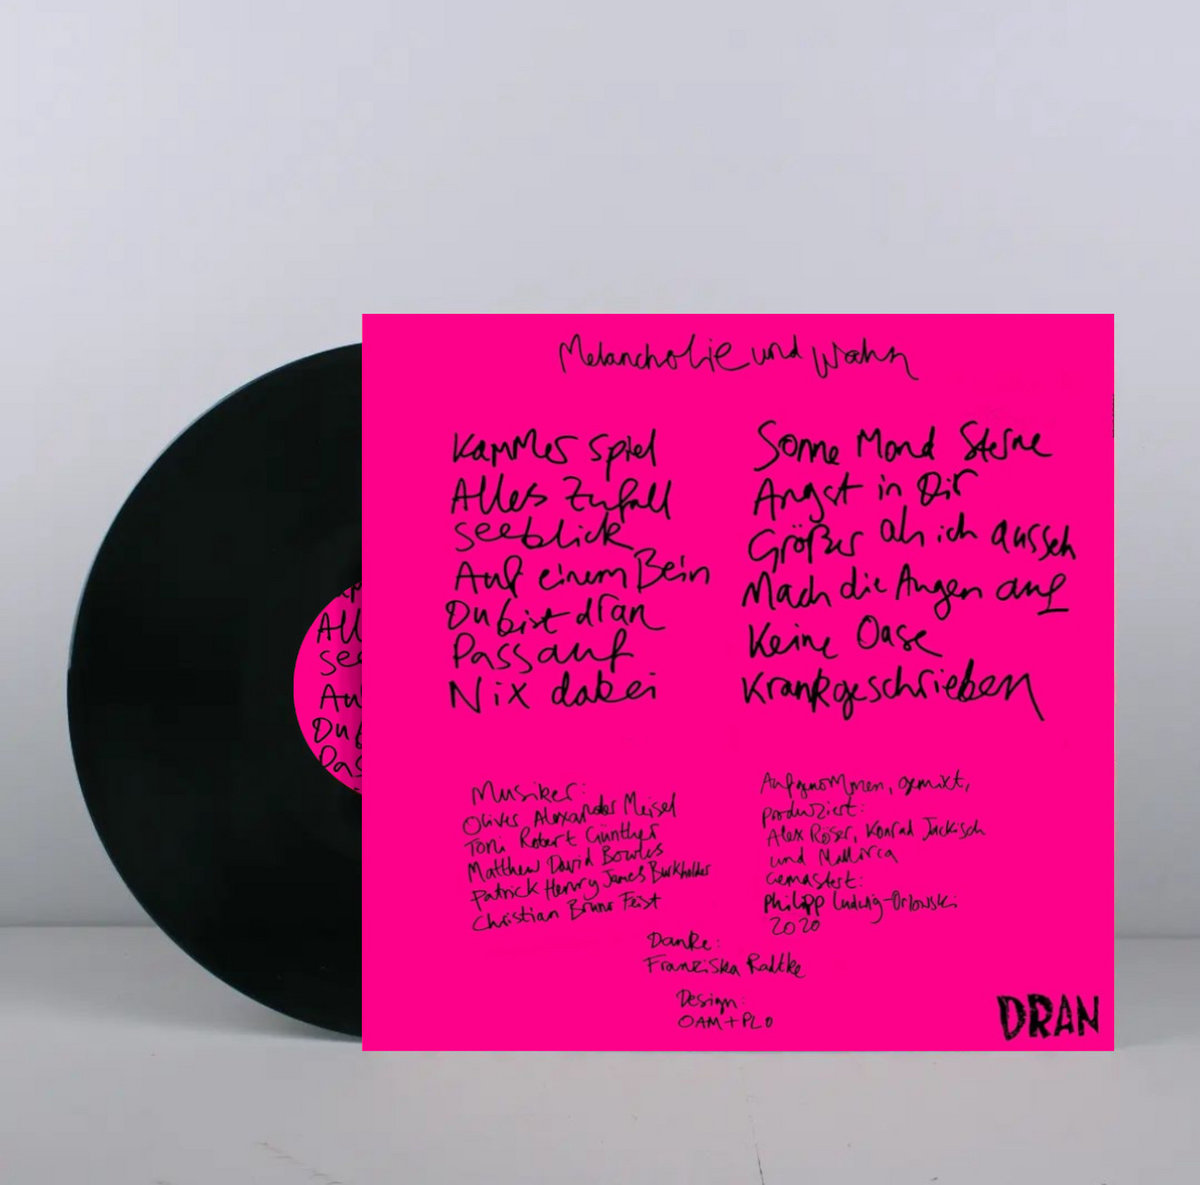 Melancholie und Wahn
Kammer Spiel
Alles Zufall
Seeblick
Auf einem Bein
Du bist dran
Pass auf
Nix dabei
Sonne Mond Sterne
Angst in Dir
Größer als ich ausseh
Mach die Augen auf
Keine Oase
Krankgeschrieben
Musiker:
Oliver Alexander Meisel
Toni Robert Günther
Matthew David Bowles
Patrick Henry James Burkholder
Christian Bruno Feist
Aufgenommen, gemixt,
produziert:
Alex Röser, Konrad Jackisch
und Mallorca
Gemastert:
Philipp Ludwig-Orlowski
2020
Danke:
Franziska Radtke
Design:
OAM+PLO
DRAN
All
See
Au
Du b
Pas